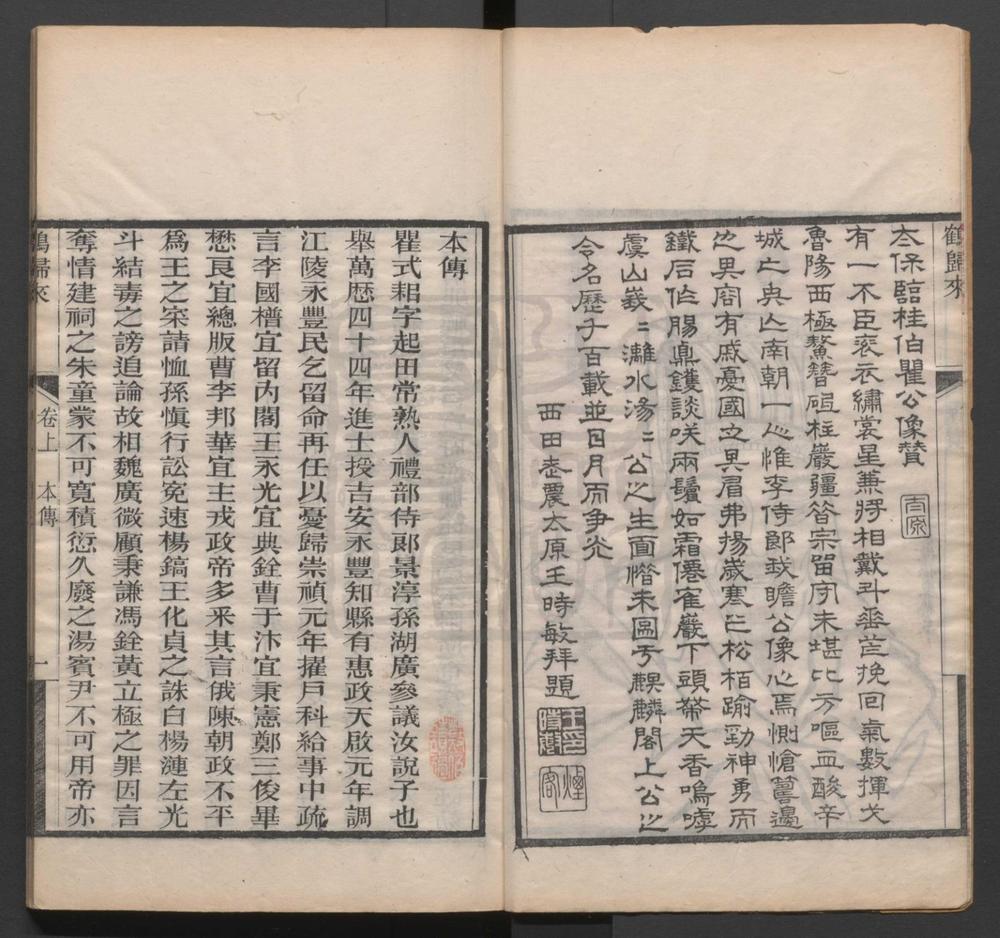 鶴歸來
太保臨桂伯瞿公像贊
太原
有一不臣袞衣繡裳星兼將相戴斗垂芒挽回氣數揮戈
魯陽西極鰲簪砥柱巖疆昝宗留守未堪比方嘔血酸辛
城亡與亡南朝一心惟李侍郎我瞻公像心焉惻愴籌邊
之容有戚憂國之眉弗揚歲寒之松柏踰勁神勇而
鐵石作腸鼎鑊談笑兩鬢如霜僊崔巖下頭帶天香嗚嘑
虞山峩〻灕水湯〻公之生面憯未圖于麒麟閣上公之
令名歷千百載並日月而爭光
西田老農太原王時敏拜題
煙客
本傳
瞿式耜字起田常熟人禮部侍郎景淳孫湖廣參議汝說子也
舉萬歷四十四年進士授吉安永豐知縣有惠政天啟元年調
江陵永豐民乞留命再任以憂歸崇禎元年擢戶科給事中疏
言李國𣚴宜留內閣王永光宜典銓曹于汴宜秉憲鄭三俊畢
懋良宜總版曹李邦華宜主戎政帝多釆其言俄陳朝政不平
爲王之寀請恤孫愼行訟冤速楊鎬王化貞之誅白楊漣左光
斗結毒之謗追論故相魏廣微顧秉謙馮銓黃立極之罪因言
奪情建祠之朱童䝉不可寬積愆久廢之湯賓尹不可用帝亦
鶴歸來
卷上
本傳
一